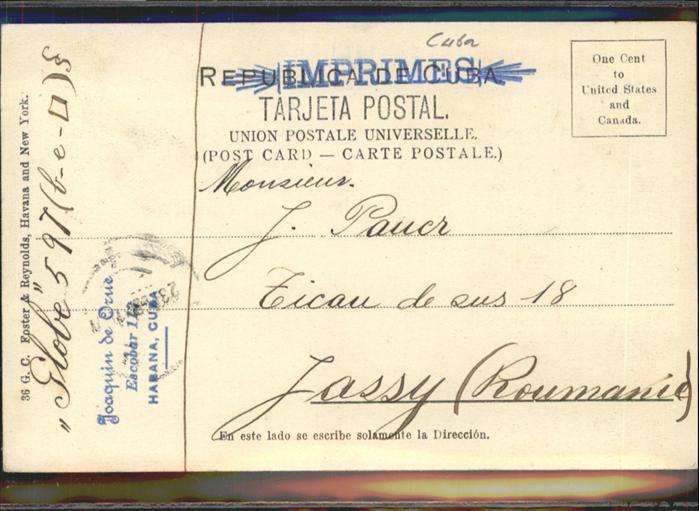 Cuba
REPUBLICA DE CUBA.
IMPRIMES
TARJETA POSTAL.
UNION POSTALE UNIVERSELLE.
(POST CARD — CARTE POSTALE.)
One Cent
to
United States
and
Canada.
Monsieur.
J. Paucr
Ticau de sus 18
Jassy (Roumanie)
En este lado se escribe solamente la Dirección.
36 G. C. Foster & Reynolds, Havana and New York.
„Globe" 597 (b-e-□) §
Joaquin de Orue
Escobar
HABANA, CUBA